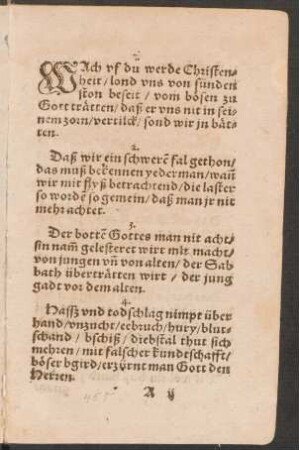 WAch vf du werde Christen-
heit / lond vns von sünden
ston beseit / vom bösen zu
Gott trätten / daß er vns nit in sei-
nem zorn / vertilck / sond wir jn bät-
ten.
2.
Daß wir ein schwerē fal gethon /
das muß bekennen yederman / wañ
wir mit flyß betrachtend / die laster
so wordē so gemein / daß man jr nit
mehr achtet.
3.
Der bottē Gottes man nit acht /
sin nam̄ gelesteret wirt mit macht /
von jungen vñ von alten / der Sab
bath überträtten wirt / der jung
gadt vor dem alten.
4.
Hassz vnd todschlag nimpt über
hand / vnzucht / eebruch / hury / blut-
schand / bschiß / diebstal thut sich
mehren / mit falscher kundtschafft /
böser bgird / erzürnt man Gott den
Herren.
A ij